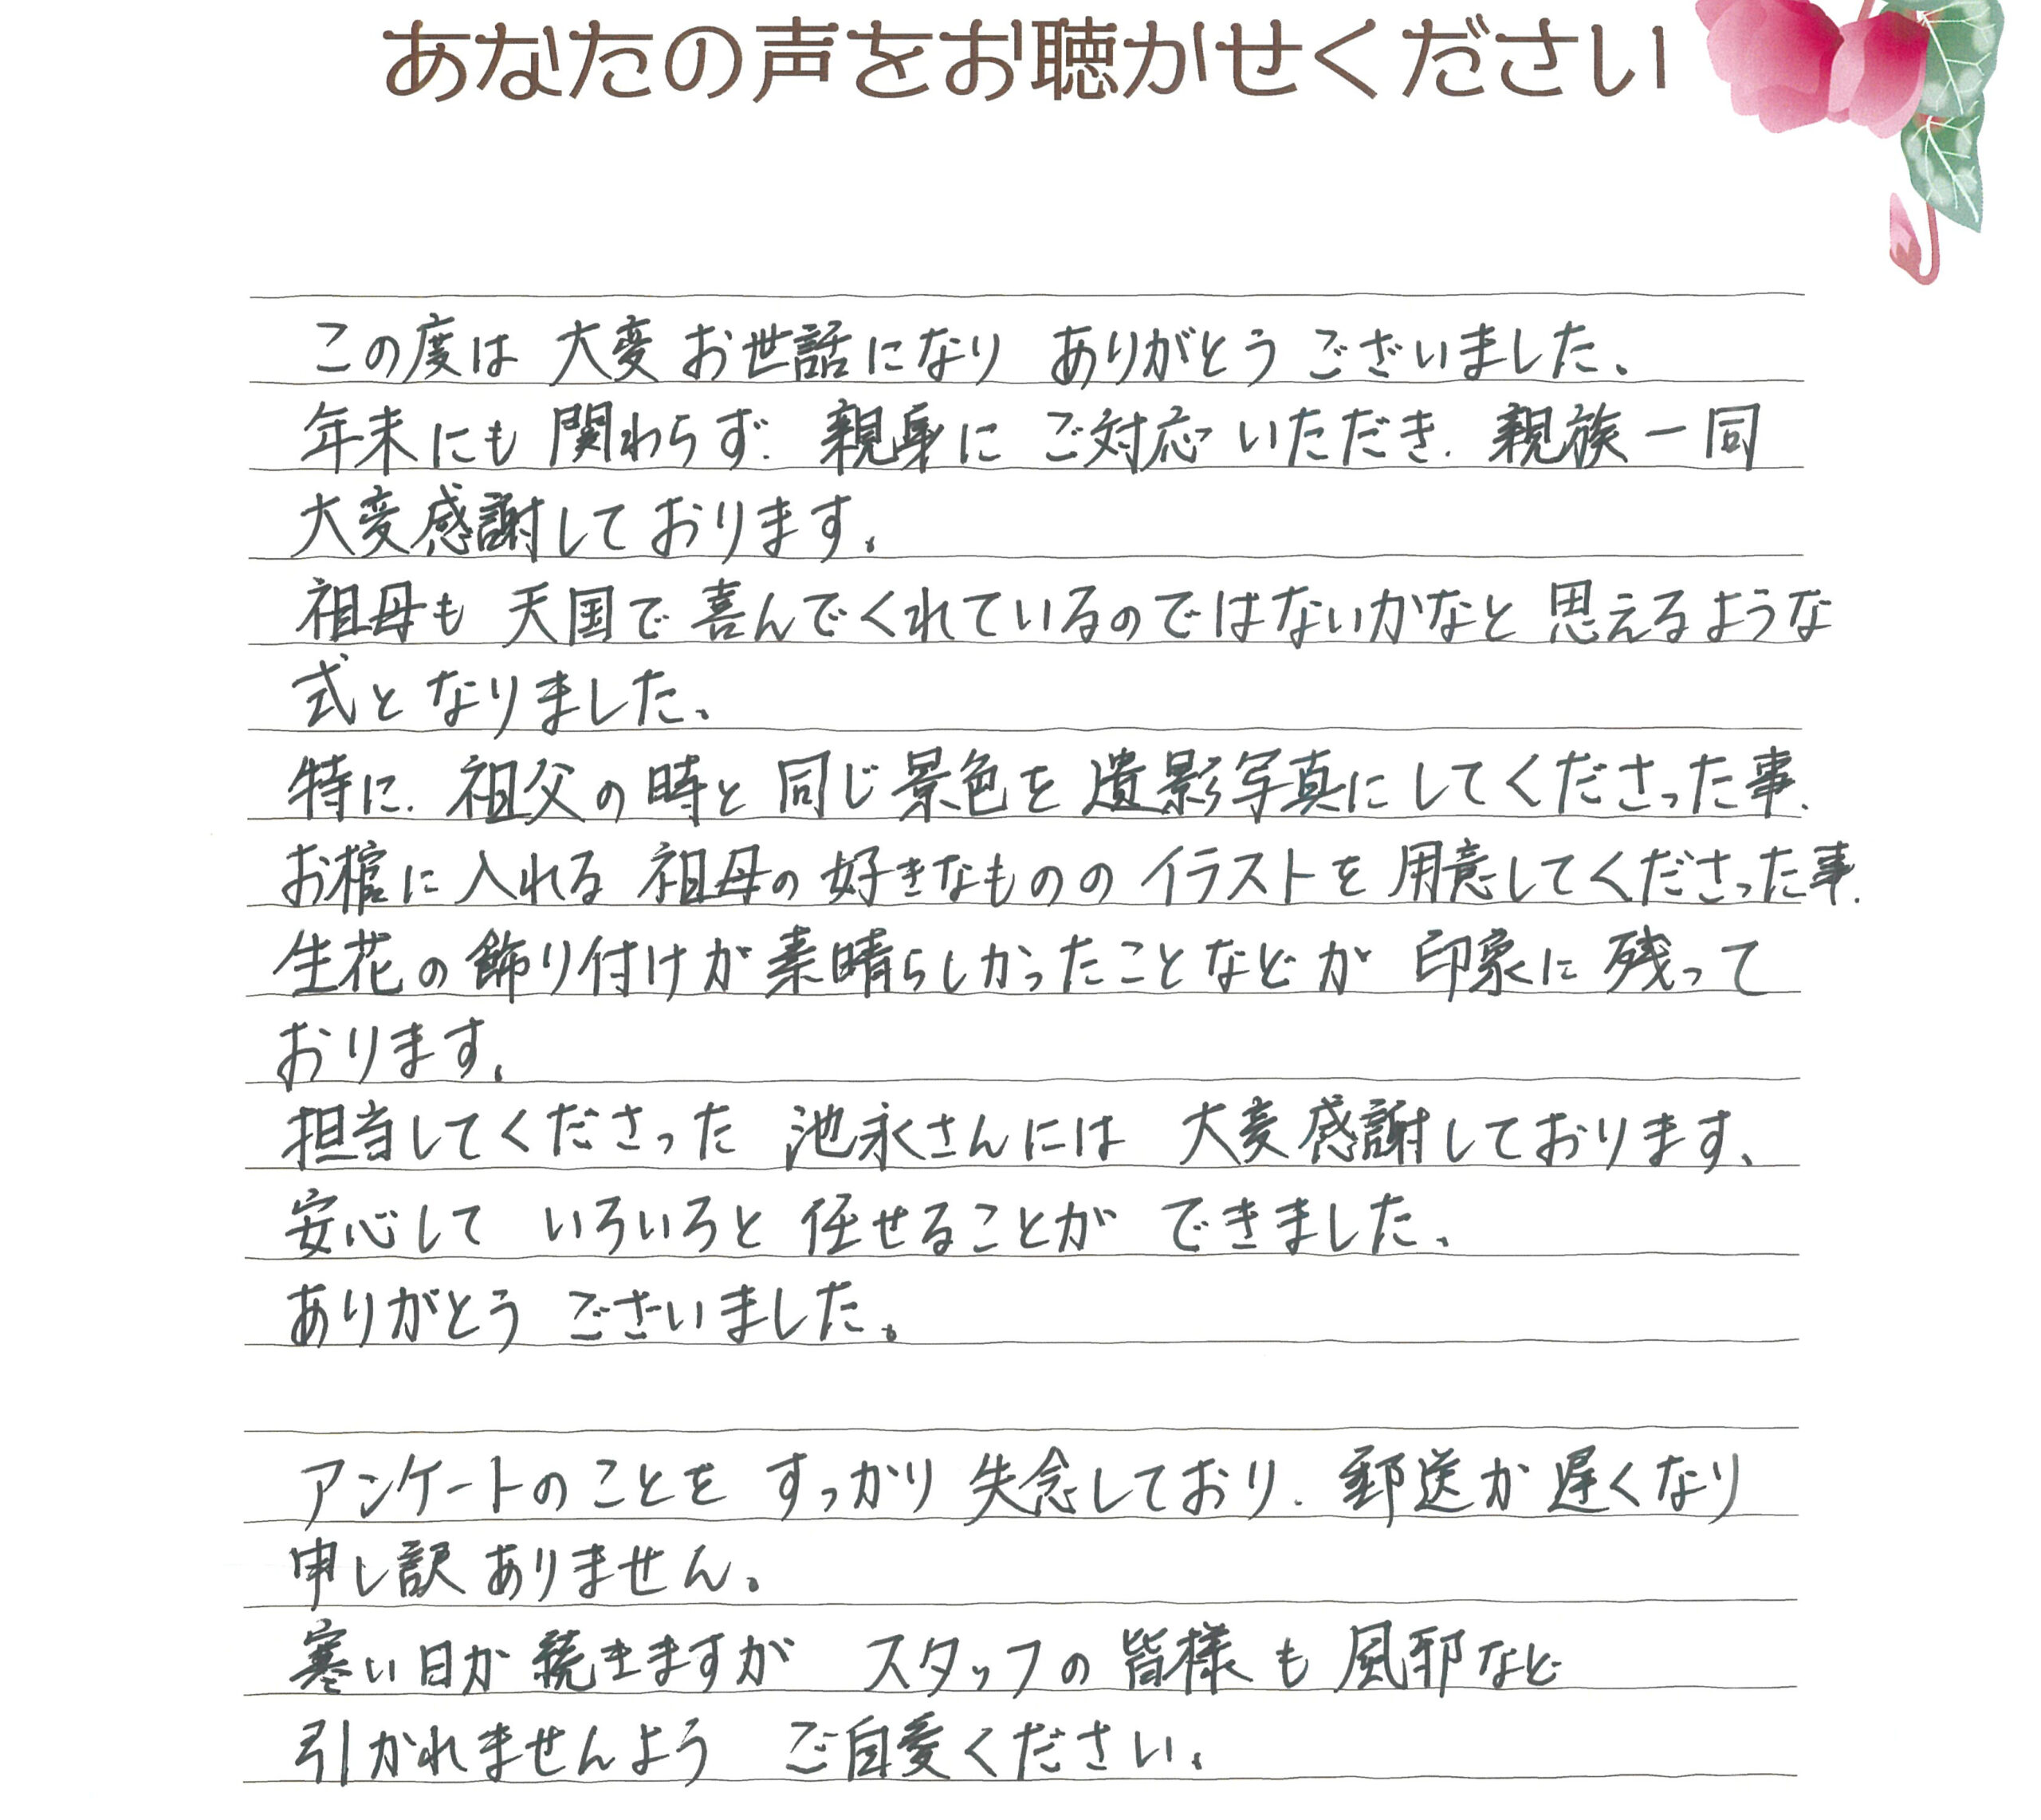 あなたの声をお聴かせください
この度は 大変 お世話になり ありがとう ございました。
年末にも 関わらず、親身に ご対応 いただき、親族一同
大変感謝しております。
祖母も 天国で 喜んでくれているのではないかなと 思えるような
式と なりました。
特に、祖父の時と 同じ景色を 遺影写真にしてくださった事、
お棺に入れる 祖母の好きなものの イラストを 用意してくださった事、
生花の飾り付けが素晴らしかったことなどが 印象に 残って
おります。
担当してくださった 池永さんには 大変感謝しております。
安心して いろいろと 任せることが できました。
ありがとう ございました。
アンケートのことを すっかり 失念しており、郵送が 遅くなり
申し訳ありません。
寒い日が 続きますが スタッフの皆様も 風邪など
引かれませんよう ご自愛ください。